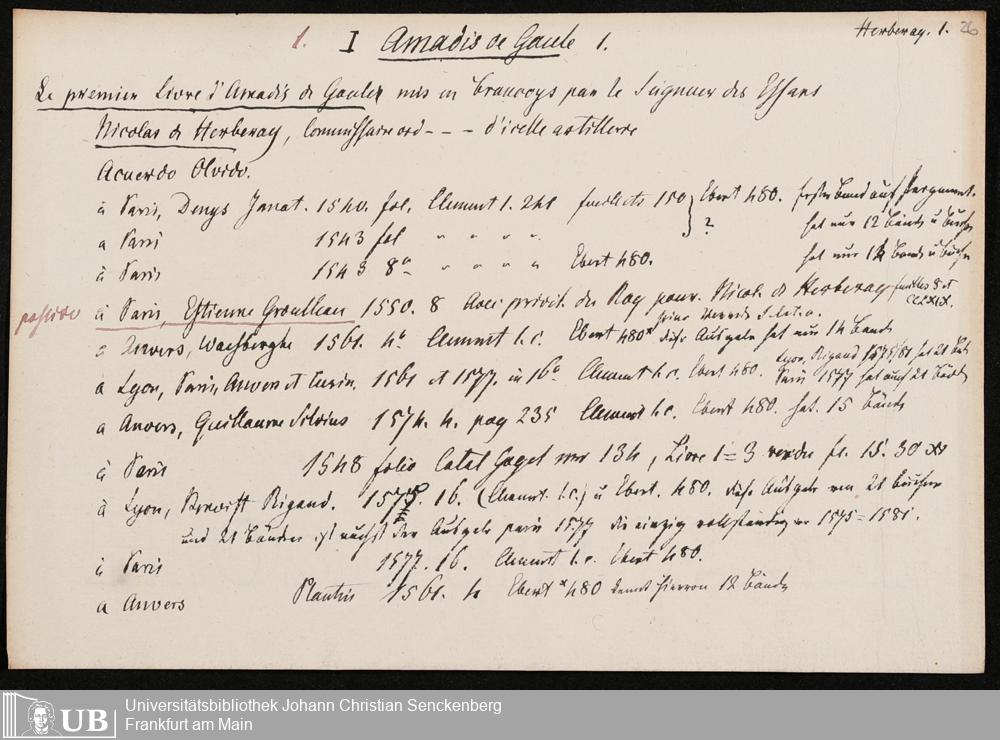 1. I Amadis de Gaule 1. Herberay. 1. 26
Le premier Livre d'Amadis de Gaule mis en francoys par le Seigneur des Essars
Nicolas de Herberay, Commissaire ord - - - d'icelle artillerie
Acuerdo Olvido.
à Paris, Denys Janot. 1540. fol. Clement 1. 241 feuillets 150 } Ebert 480. erster Band auf Pergament.
a Paris 1543 fol " " " " ? hat nur 12 Bände u Bücher
à Paris 1543 8° " " " " Ebert 480. hat nur 12 Bände u Bücher
possideo à Paris, Estienne Groulleau 1550. 8 Avec privil. du Roy pour Nicol. de Herberay feuilles 8 et CCLXIX.
a Anvers, Waesberghe 1561. 4° Clement l. c. Ebert 480* diese Ausgabe hat nur 14 Bände
a Lyon, Paris, Anvers et Turin. 1561 et 1577. in 16° Clement l. c. Ebert 480. Lyon, Rigaud 1575/81 hat 21 Bde
Paris 1577 hat auch 21 Bände
a Anvers, Guillaume Silvius 1574. 4. pag 235 Clement l. c. Ebert 480. hat 15 Bände
à Paris 1548 folio Catal 134, Livre 1=3 vendu fr. 15. 30
à Lyon, Benoist Rigaud. 1575. 16. (Clement. l. c.) u Ebert. 480. diese Ausgabe von 21 Büchern
und 21 Bänden ist nächst der Ausgabe paris 1577 die einzig vollständige 1575=1581.
à Paris 1577. 16. Clement l. c. Ebert 480.
a Anvers Plantin 1561. 4 Ebert * 480 kennt hiervon 12 Bände
UB Universitätsbibliothek Johann Christian Senckenberg
Frankfurt am Main